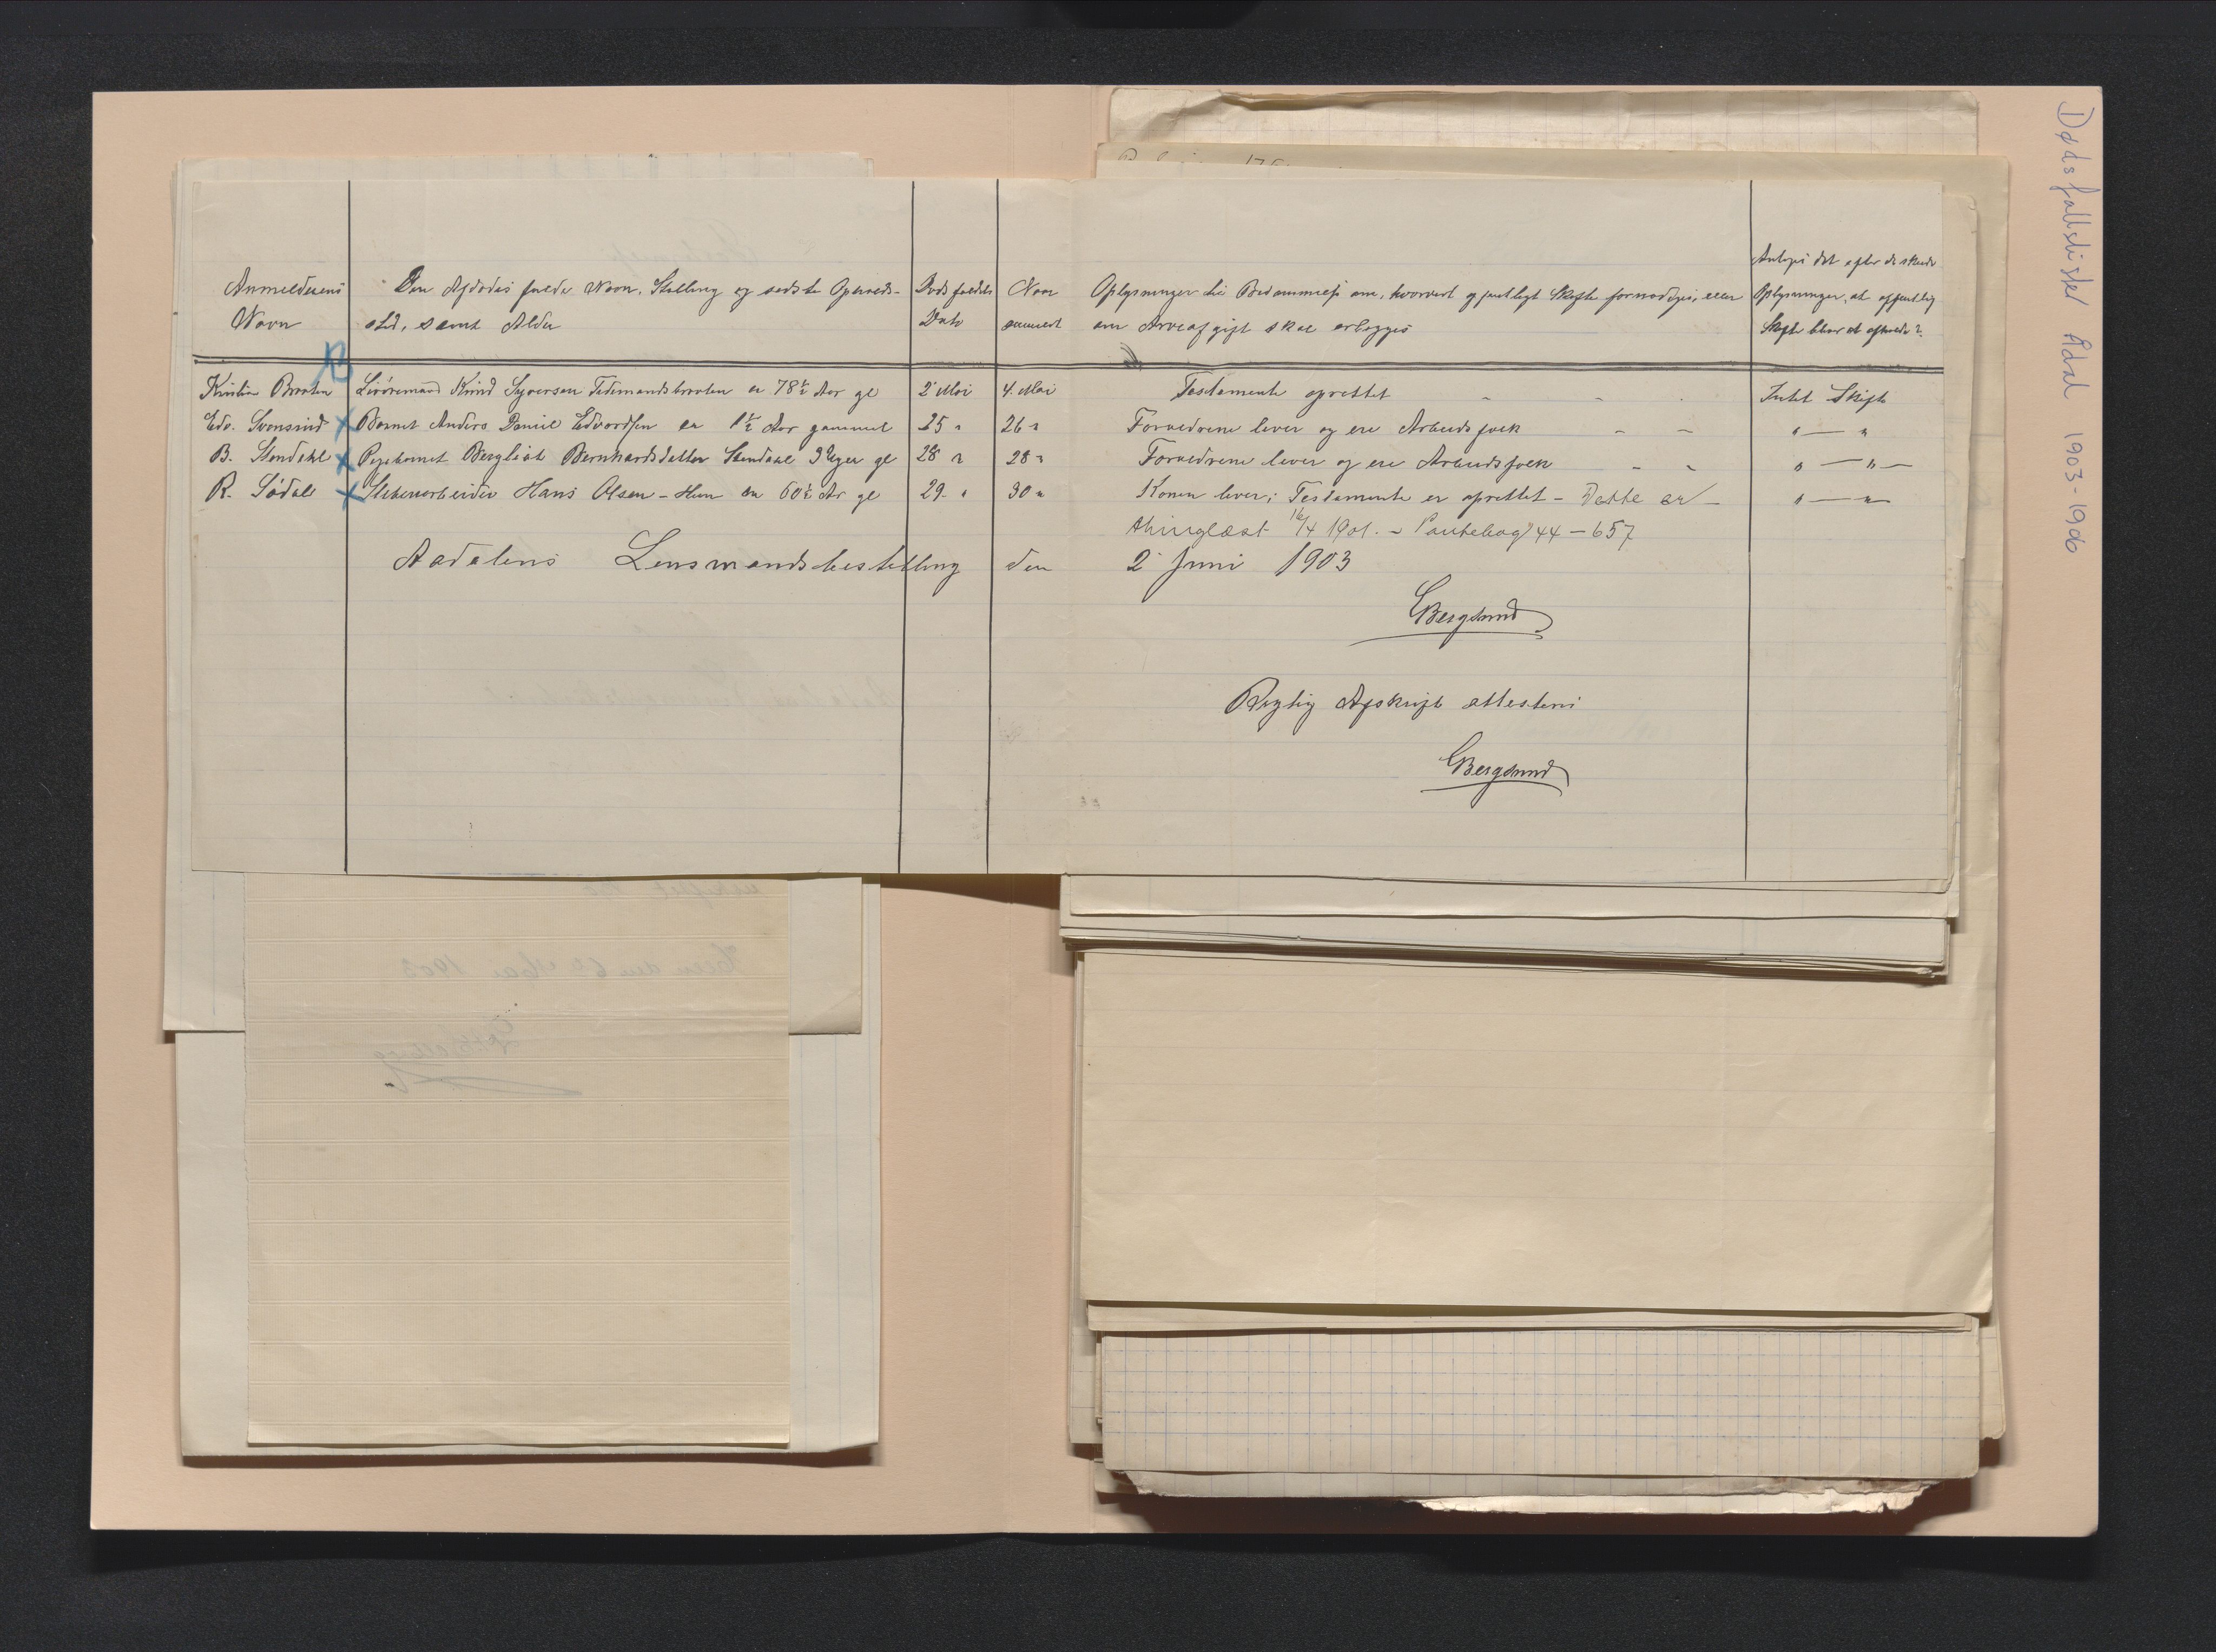 Dødsfallslister Ådal 1903-1906
Anmelderens Navn
Den Afdødes fulde Navn, Stilling og sidste Opholds-
sted, samt Alder
Dødsfaldets Dato
Naar anmeldt
Oplysninger til Bedømmelse om, hvorvidt offentligt Skifte fornødiges, eller
om Arveafgift skal erlægges
Antages det efter de skeede
Oplysninger, at offentlig
Skifte bliver at afholde?
Kristian Braaten Knud Syversen Tidemandsbraaten er 78½ Aar gl 2 Mai 4. Mai Testamente oprettet - - - Intet Skifte
Edv. Svensrud x Barnet Anders Daniel Edvardsen er 1½ Aar gammel 25 " 26 " Forældrene lever og ere Arbeidsfolk - - " — "
B. Stendahl x Pigebarnet Bergliot Bernhardsdatter Stendahl 3 Uger gl 28 " 28 " Forældrene lever og ere Arbeidsfolk - - " — " —
R. Sødal x Hans Olsen - Hen er 60½ Ar gl 29 " 30 " Konen lever; Testamente er oprettet - Dette er - " — "
thinglæst 16/4 1901. - Pantebog 44 - 657
Aadalens Lensmandsbestilling den 2 Juni 1903
E Bergsund
Rigtig Afskrift attesteres
E Bergsund
Hen den 6 Mai 1903